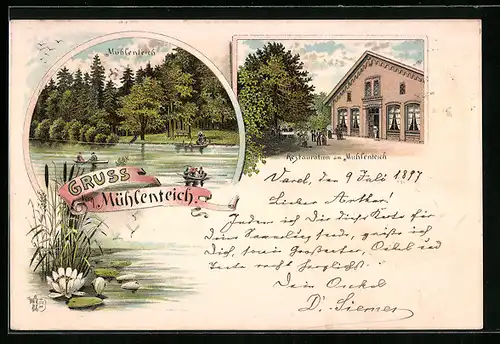 Mühlenteich
Restauration am Mühlenteich
GRUSS
v. Mühlenteich.
Varel, den 9 Juli 1897
Lieber Arthur!
Indem ich Dir diese Karte für
Deine Sammlung sende, grüße ich
Dich, sowie Großeltern, Onkel und
Tante recht herzlichst.
Dein Onkel
D. Siemer